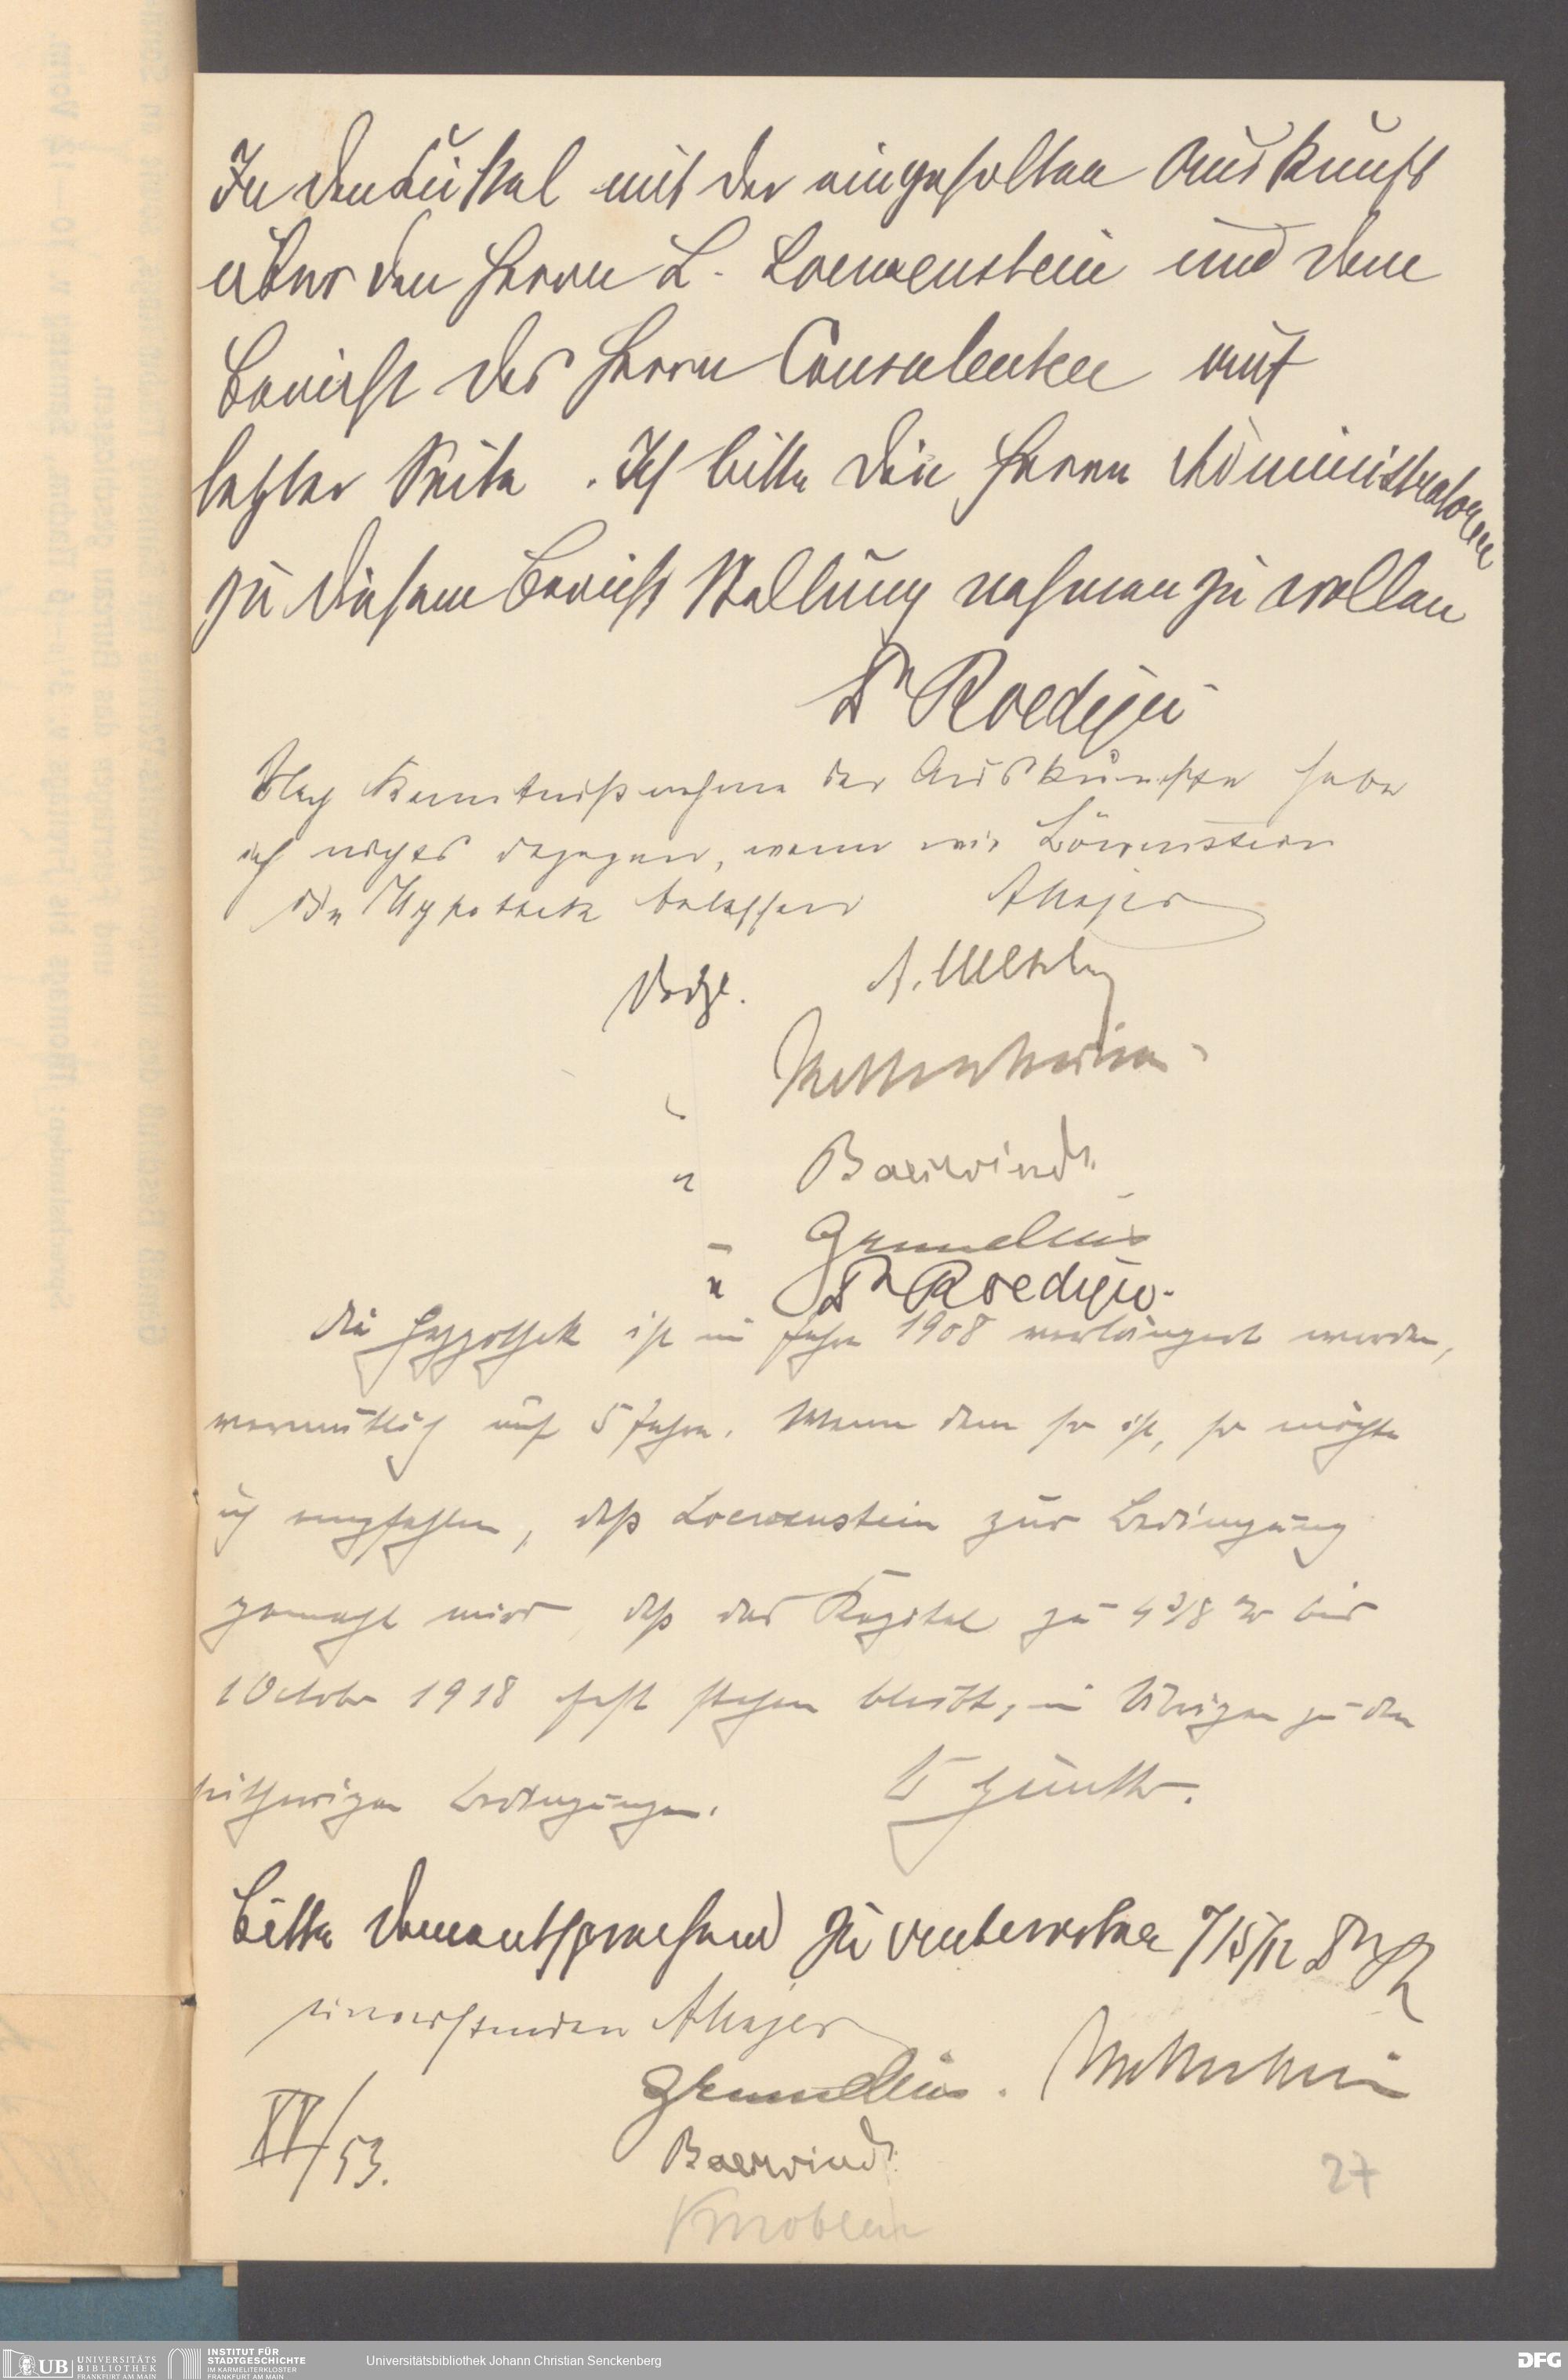 In den Zirkel mit der eingeholten Auskunft
über den Herrn L. Loewenstein und dem
Bericht des Herrn Consulenten auf
letzter Seite. Ich bitte die Herrn Administratoren
zu diesem Bericht Stellung nehmen zu wollen
Dr Roediger
Nach Kenntnißnahme der Auskünfte habe
ich nichts dagegen, wenn wir Löwenstein
die Hypothek belassen AMajer
Desgl. A. Metzler
" Mettenheimer
" Baerwindt
" Grunelius
" Dr Roediger.
Die Hypothek ist im Jahre 1908 verlängert worden,
vermutlich auf 5 Jahre. Wenn dem so ist, so möchte
ich empfehlen, daß Loewenstein zur Bedingung
gemacht wird, daß das Kapital zu 4 3/8 % bis
1 October 1918 fest stehen bleibt, im Übrigen zu den
seitherigen Bedingungen. Günther.
Bitte dementsprechend zu antworten 7/5/12 Dr R
einverstanden AMajer
Grunelius. Mettenheimer
XV/53. Baerwindt
Knoblauch
27
UB UNIVERSITÄTS
BIBLIOTHEK
FRANKFURT AM MAIN
INSTITUT FÜR
STADTGESCHICHTE
IM KARMELITERKLOSTER
FRANKFURT AM MAIN
Universitätsbibliothek Johann Christian Senckenberg
DFG